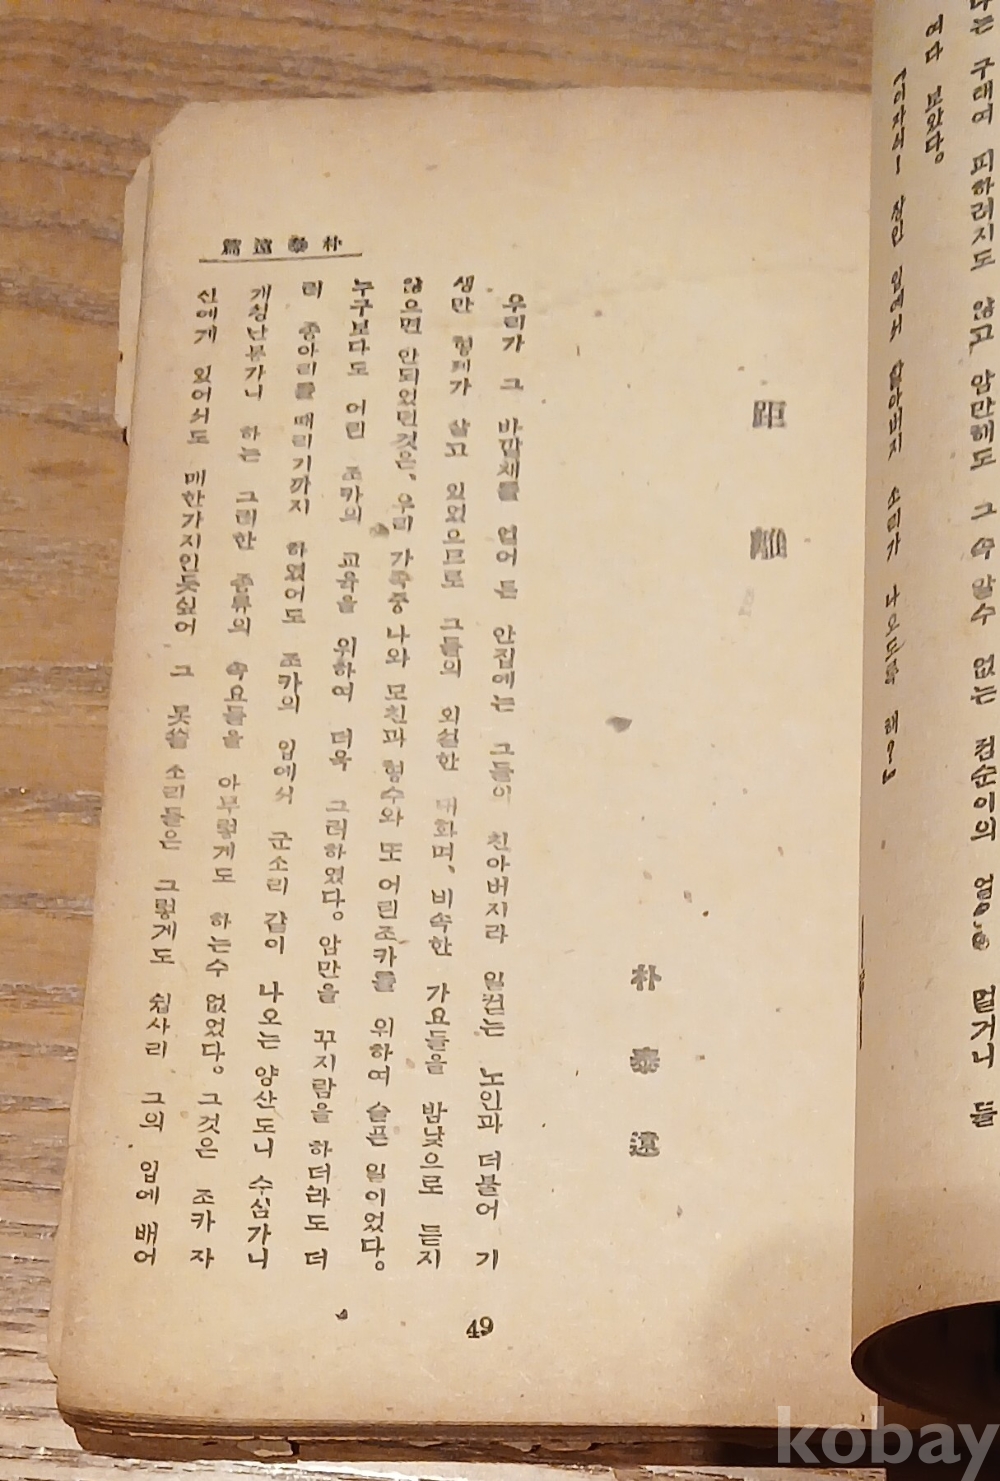 나는 구태여 피하려지도 않고 암만해도 그 속 알수 없는 점순이의 얼굴만 멀거니 들
여다 보았다.
장인 입에서 할아버지 소리가 나오도록 해?』
距離
朴泰遠
우리가 그 바깥채를 얻어 든 안집에는 그들이 친아버지라 일컫는 노인과 더불어 기
생만 형제가 살고 있었으므로 그들의 외설한 대화며、비속한 가요들을 밤낮으로 듣지
않으면 안되었던것은、우리 가족중 나와 모친과 형수와 또 어린조카를 위하여 슬픈 일이었다。
누구보다도 어린 조카의 교육을 위하여 더욱 그러하였다。암만을 꾸지람을 하더라도 더
러 종아리를 때리기까지 하였어도 조카의 입에서 군소리 같이 나오는 양산도니 수심가니
개성난봉가니 하는 그러한 종류의 속요들을 아무렇게도 하는수 없었다。그것은 조카 자
신에게 있어서도 매한가지인듯싶어 그 못쓸 소리들은 그렇게도 쉽사리 그의 입에 배어
朴泰遠篇
49
kobay